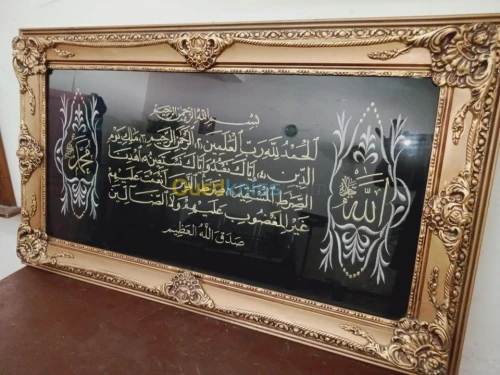 بسم الله الرحمن الرحيم
الحمد لله رب العلمين الرحمن الرحيم ملك يوم
الدين إياك نعبد وإياك نستعين اهدنا
الصرط المستقيم صرط الذين أنعمت عليهم
غير المغضوب عليهم ولا الضالين
صدق الله العظيم
الله
محمد
Ouedkniss